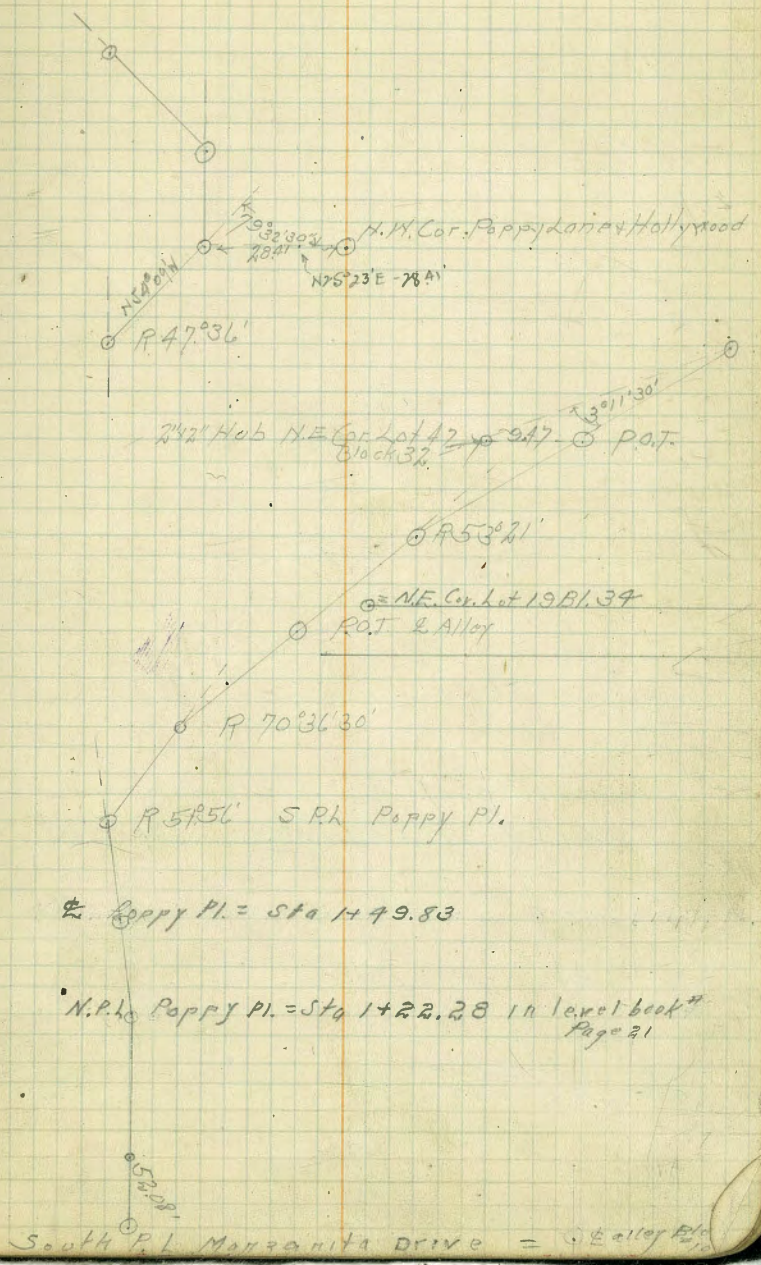 79°32'30"
28.41'
N.W. Cor. Poppy Lane & Hollywood
N25°23'E - 28.41'
N54°09'W
R 47°36'
3°11'30"
2"x2" Hub N.E. Cor. Lot 47 9.47 P.O.T.
Block 32
R 53°21'
= N.E. Cor. Lot 19 Bl. 34
P.O.T. ℄ Alley
R 70°36'30"
R 51°56' S P.L Poppy Pl.
℄ Poppy Pl. = Sta 1+49.83
N.P.L. Poppy Pl. = Sta 1+22.28 in level book #
Page 21
52.08'
South P.L Manzanita Drive = ℄ alley